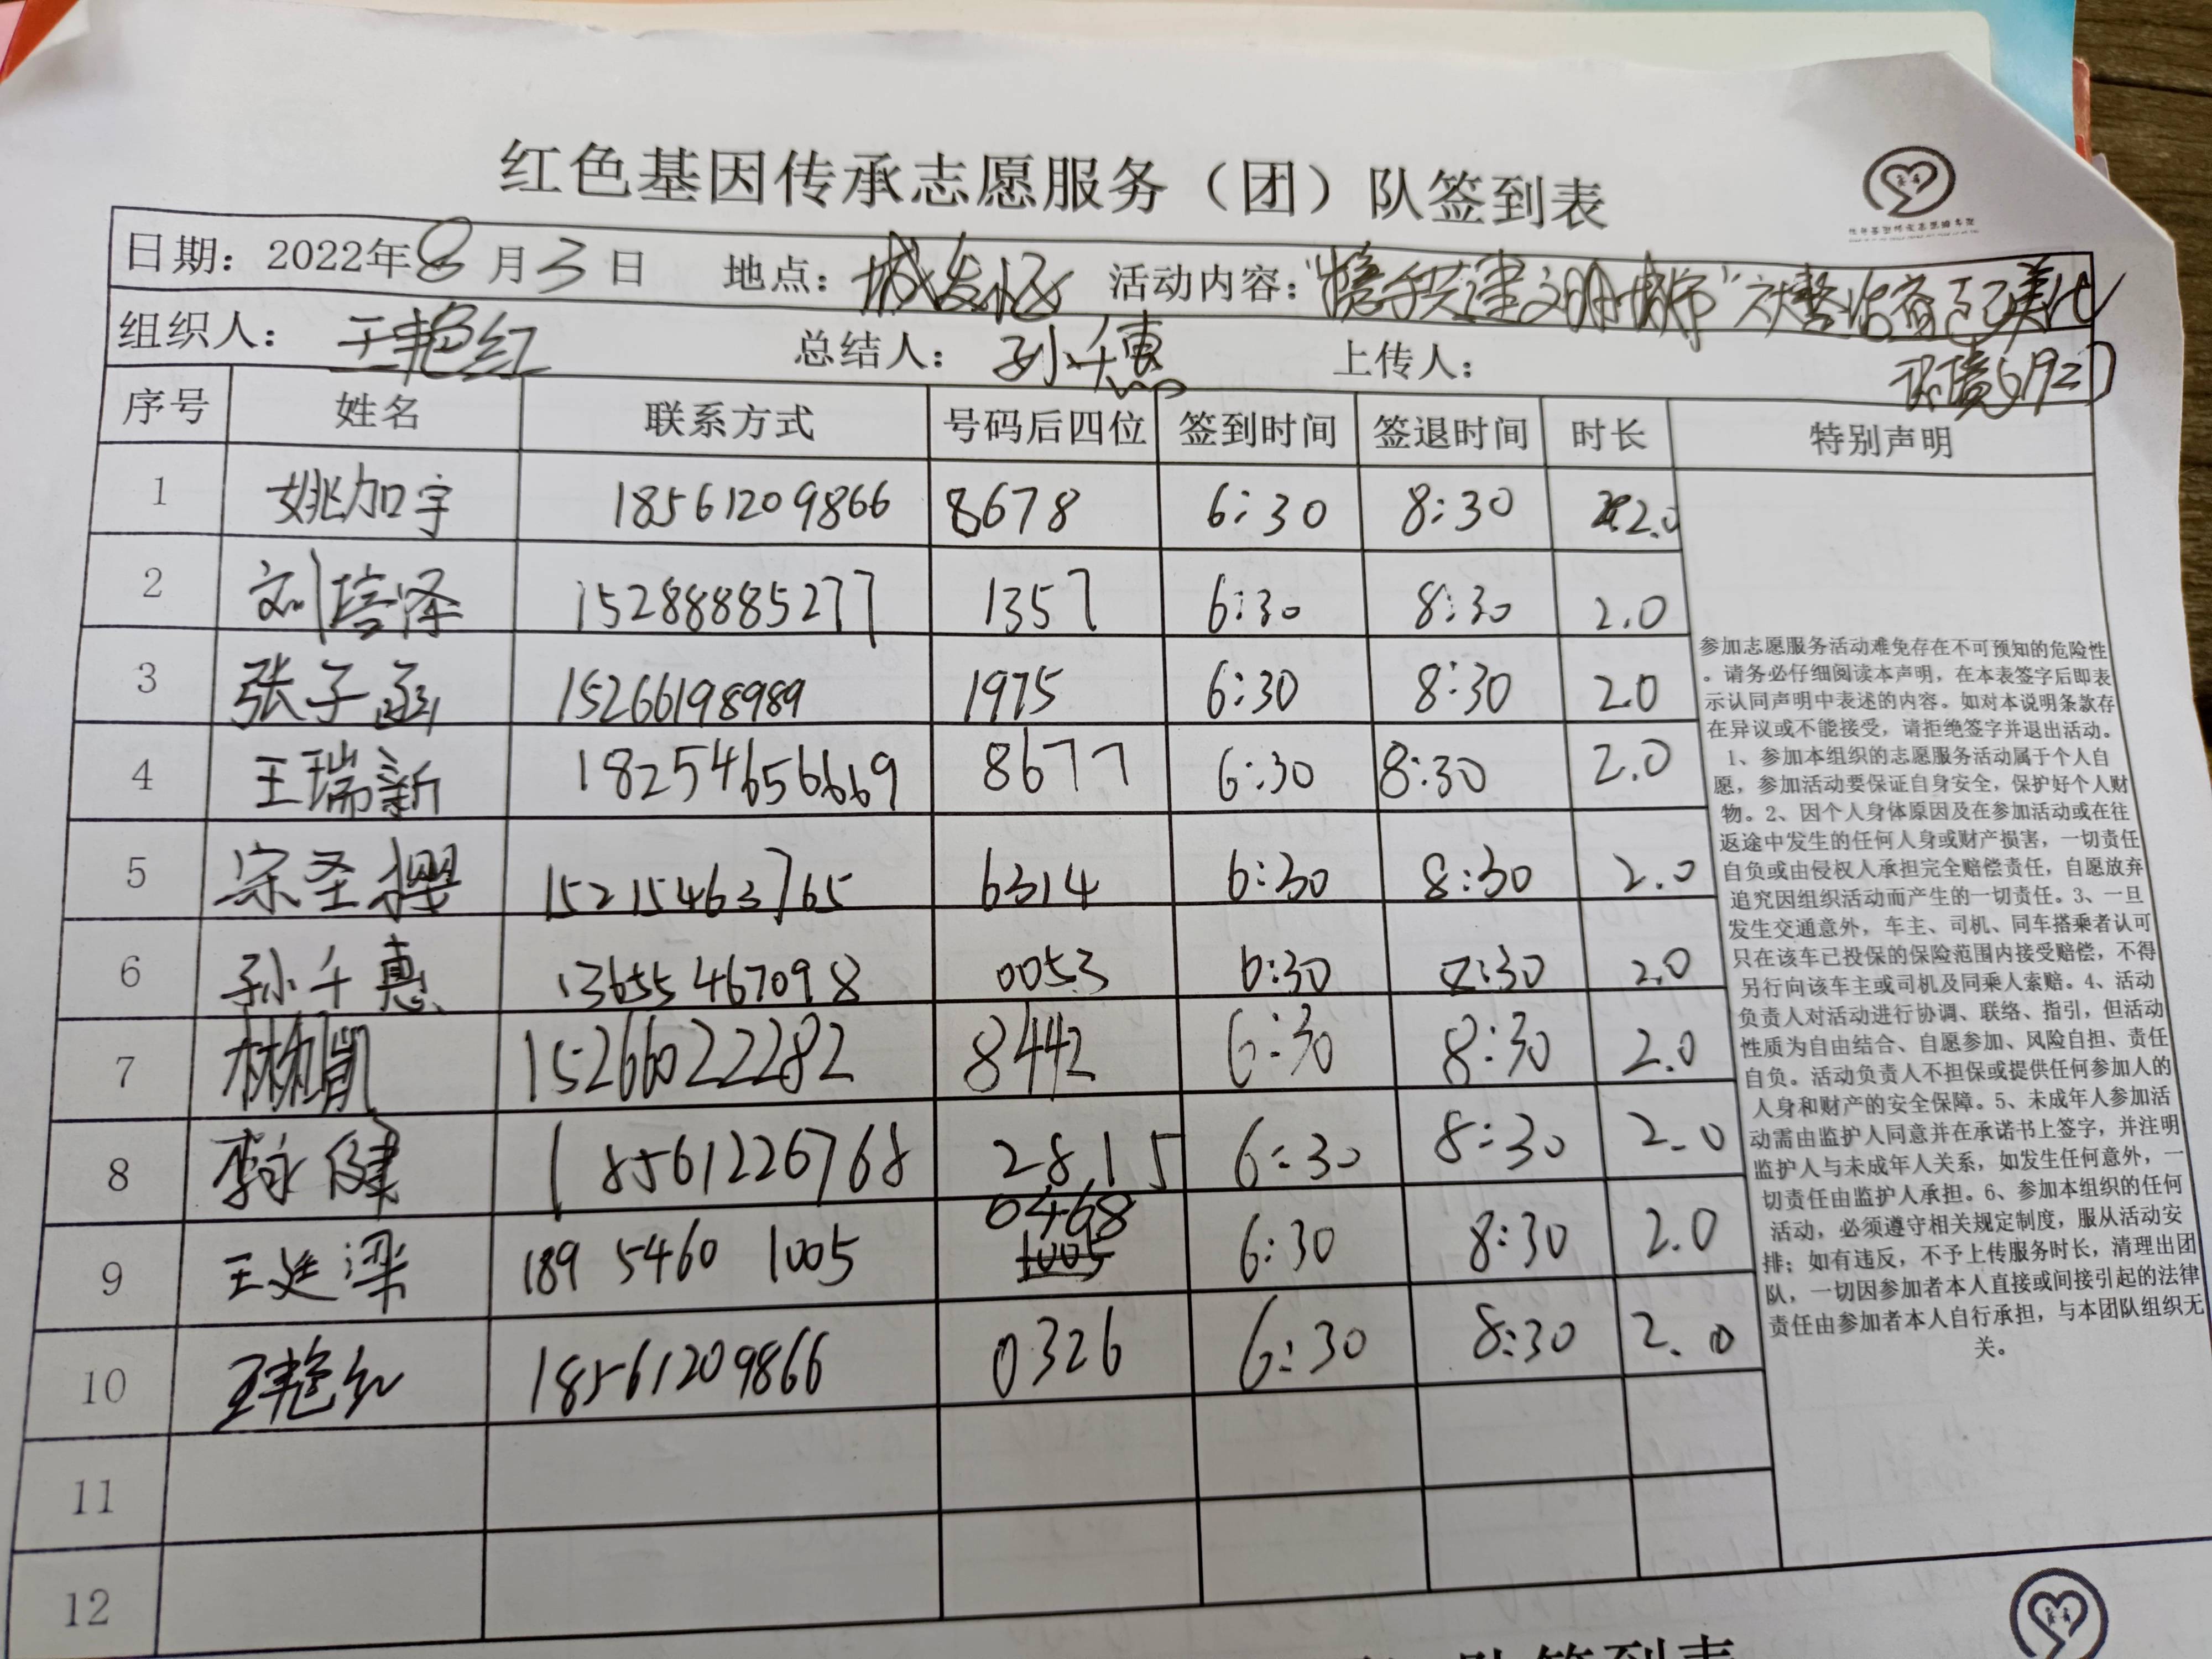 红色基因传承志愿服务（团）队签到表
日期：2022年8月3日 地点：城发 活动内容："携手共建文明城市"大整治 美化
环境
组织人：王艳红 总结人：孙千惠 上传人：
序号 姓名 联系方式 号码后四位 签到时间 签退时间 时长 特别声明
1 姚加宇 18561209866 8678 6:30 8:30 2.0
2 刘培泽 15288885277 1357 6:30 8:30 2.0
3 张子涵 15266198989 1975 6:30 8:30 2.0
4 王瑞新 18254656669 8677 6:30 8:30 2.0
5 宗圣樱 15215463765 6314 6:30 8:30 2.0
6 孙千惠 13655467098 0053 6:30 8:30 2.0
7 林旭凯 15266022282 8442 6:30 8:30 2.0
8 李泳健 18561226768 2815 6:30 8:30 2.0
9 王廷梁 189 5460 1005 0468 1005 6:30 8:30 2.0
10 王艳红 18561209866 0326 6:30 8:30 2.0
11
12
参加志愿服务活动难免存在不可预知的危险性
。请务必仔细阅读本声明，在本表签字后即表
示认同声明中表述的内容。如对本说明条款存
在异议或不能接受，请拒绝签字并退出活动。
1、参加本组织的志愿服务活动属于个人自
愿，参加活动要保证自身安全，保护好个人财
物。2、因个人身体原因及在参加活动或在往
返途中发生的任何人身或财产损害，一切责任
自负或由侵权人承担完全赔偿责任，自愿放弃
追究因组织活动而产生的一切责任。3、一旦
发生交通意外，车主、司机、同车搭乘者认可
只在该车已投保的保险范围内接受赔偿，不得
另行向该车主或司机及同乘人索赔。4、活动
负责人对活动进行协调、联络、指引，但活动
性质为自由结合、自愿参加、风险自担、责任
自负。活动负责人不担保或提供任何参加人的
人身和财产的安全保障。5、未成年人参加活
动需由监护人同意并在承诺书上签字，并注明
监护人与未成年人关系，如发生任何意外，一
切责任由监护人承担。6、参加本组织的任何
活动，必须遵守相关规定制度，服从活动安
排；如有违反，不予上传服务时长，清理出团
队，一切因参加者本人直接或间接引起的法律
责任由参加者本人自行承担，与本团队组织无
关。
队签到表